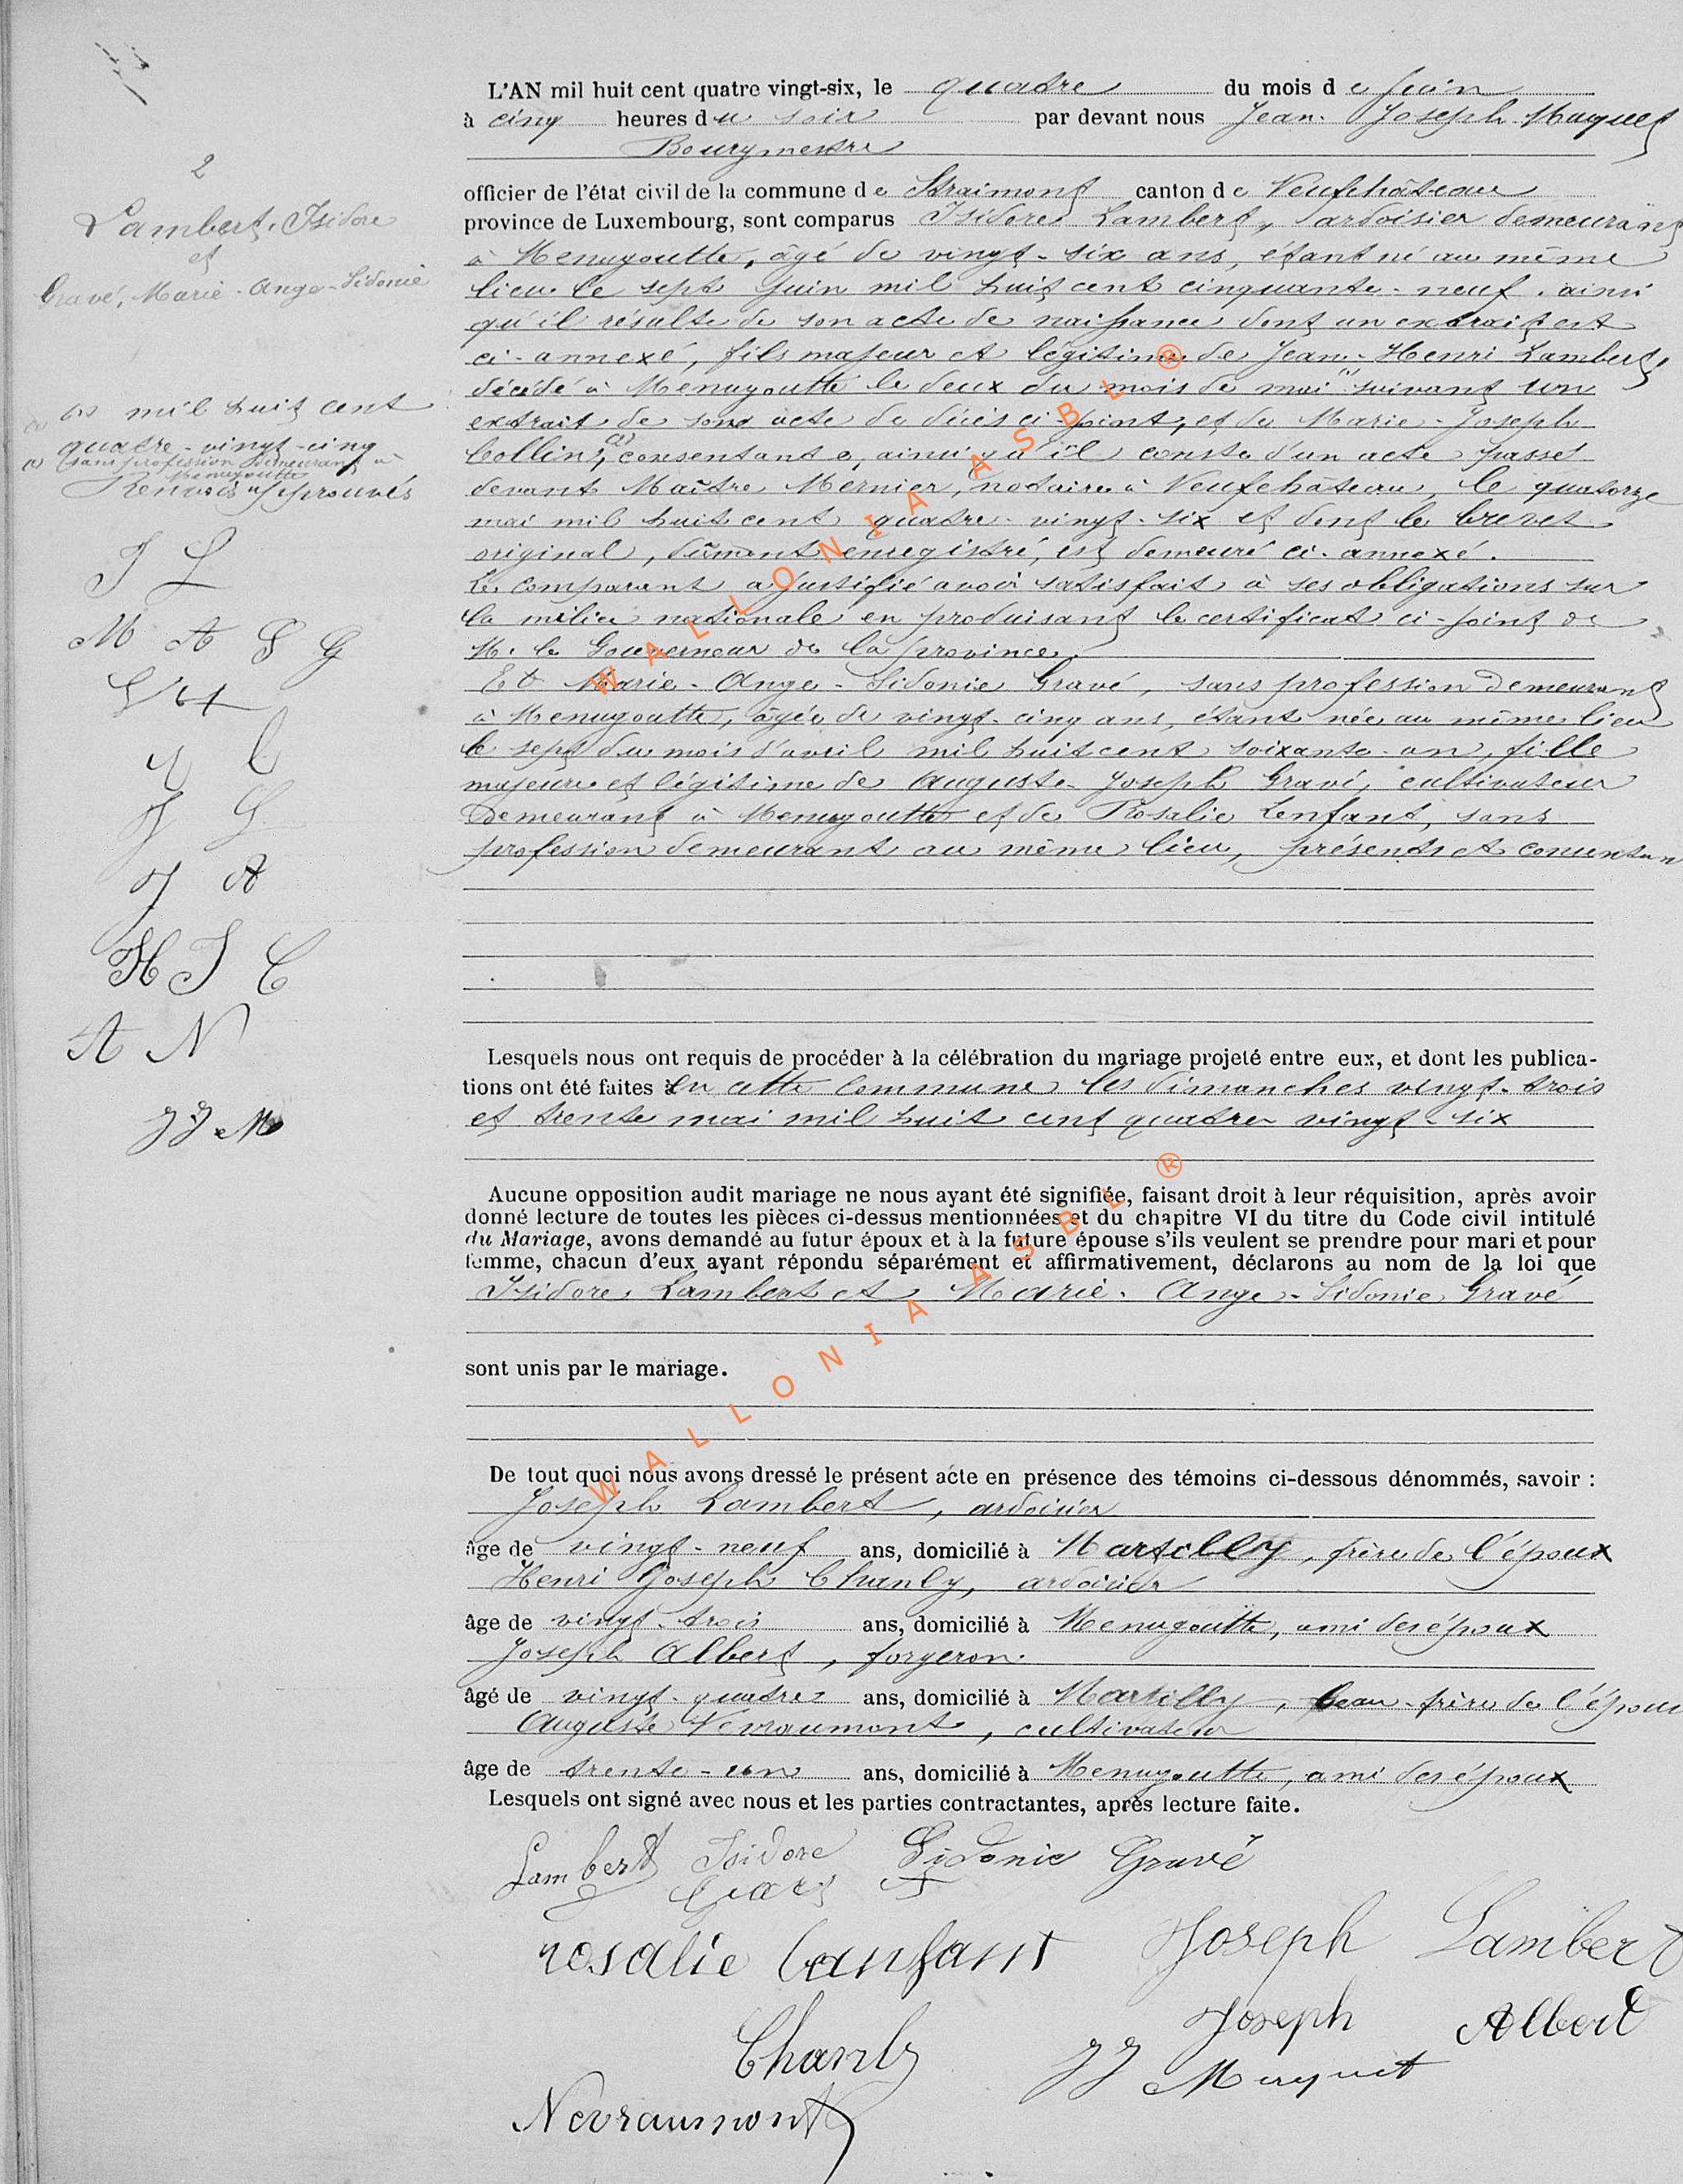 L'AN mil huit cent quatre vingt-six, le quatre du mois de Juin
à cinq heures du soir par devant nous Jean-Joseph Maquet
Bourgmestre
officier de l'état civil de la commune de Straimont canton de Neufchâteau
province de Luxembourg, sont comparus Isidore Lambert, ardoisier demeurant
à Menugoutte, âgé de vingt-six ans, étant né au même
lieu le sept Juin mil huit cent cinquante-neuf, ainsi
qu'il résulte de son acte de naissance dont un extrait est
ci-annexé, fils majeur et légitime de Jean-Henri Lambert,
décédé à Menugoutte le deux du mois de mai suivant un
extrait de son acte de décès ci-joint, et de Marie-Joseph
Collin, consentante, ainsi qu'il conste d'un acte passé
devant Maître Mernier, notaire à Neufchâteau, le quatorze
mai mil huit cent quatre-vingt-six et dont le brevet
original, dûment enregistré, est demeuré ci-annexé.
Le comparant a justifié avoir satisfait à ses obligations sur
la milice nationale en produisant le certificat ci-joint de
M. le Gouverneur de la province.
Et Marie-Ange-Sidonie Gravé, sans profession demeurant
à Menugoutte, âgée de vingt-cinq ans, étant née au même lieu
le sept du mois d'avril mil huit cent soixante-un, fille
majeure et légitime de Auguste-Joseph Gravé, cultivateur
demeurant à Menugoutte et de Rosalie Lenfant, sans
profession demeurant au même lieu, présents et consentan
2
Lambert, Isidore
et
Gravé, Marie-Ange-Sidonie
(1) mil huit cent
quatre-vingt-cinq
(2) sans profession demeurant à
Menugoutte
Renvois approuvés
I L
M A S G
J G
J A
H J C
A N
JJ M
Lesquels nous ont requis de procéder à la célébration du mariage projeté entre eux, et dont les publica-
tions ont été faites en cette Commune les dimanches vingt-trois
et trente mai mil huit cent quatre vingt-six
Aucune opposition audit mariage ne nous ayant été signifiée, faisant droit à leur réquisition, après avoir
donné lecture de toutes les pièces ci-dessus mentionnées et du chapitre VI du titre du Code civil intitulé
du Mariage, avons demandé au futur époux et à la future épouse s'ils veulent se prendre pour mari et pour
femme, chacun d'eux ayant répondu séparément et affirmativement, déclarons au nom de la loi que
Isidore Lambert et Marie-Ange-Sidonie Gravé
sont unis par le mariage.
De tout quoi nous avons dressé le présent acte en présence des témoins ci-dessous dénommés, savoir :
Joseph Lambert, ardoisier
âge de vingt-neuf ans, domicilié à Martilly, frère de l'époux
Henri Joseph Chanly, ardoisier
âge de vingt-trois ans, domicilié à Menugoutte, ami des époux
Joseph Albert, forgeron.
âgé de vingt-quatre ans, domicilié à Martilly, beau-frère de l'époux
Auguste Nevraumont, cultivateur
âge de trente-un ans, domicilié à Menugoutte, ami des époux
Lesquels ont signé avec nous et les parties contractantes, après lecture faite.
Lambert Isidore Sidonie Gravé
rosalie lanfant Joseph Lambert
Chanly Joseph Albert
JJ Maquet
Nevraumont
WALLONIA ASBL ®
WALLONIA ASBL ®